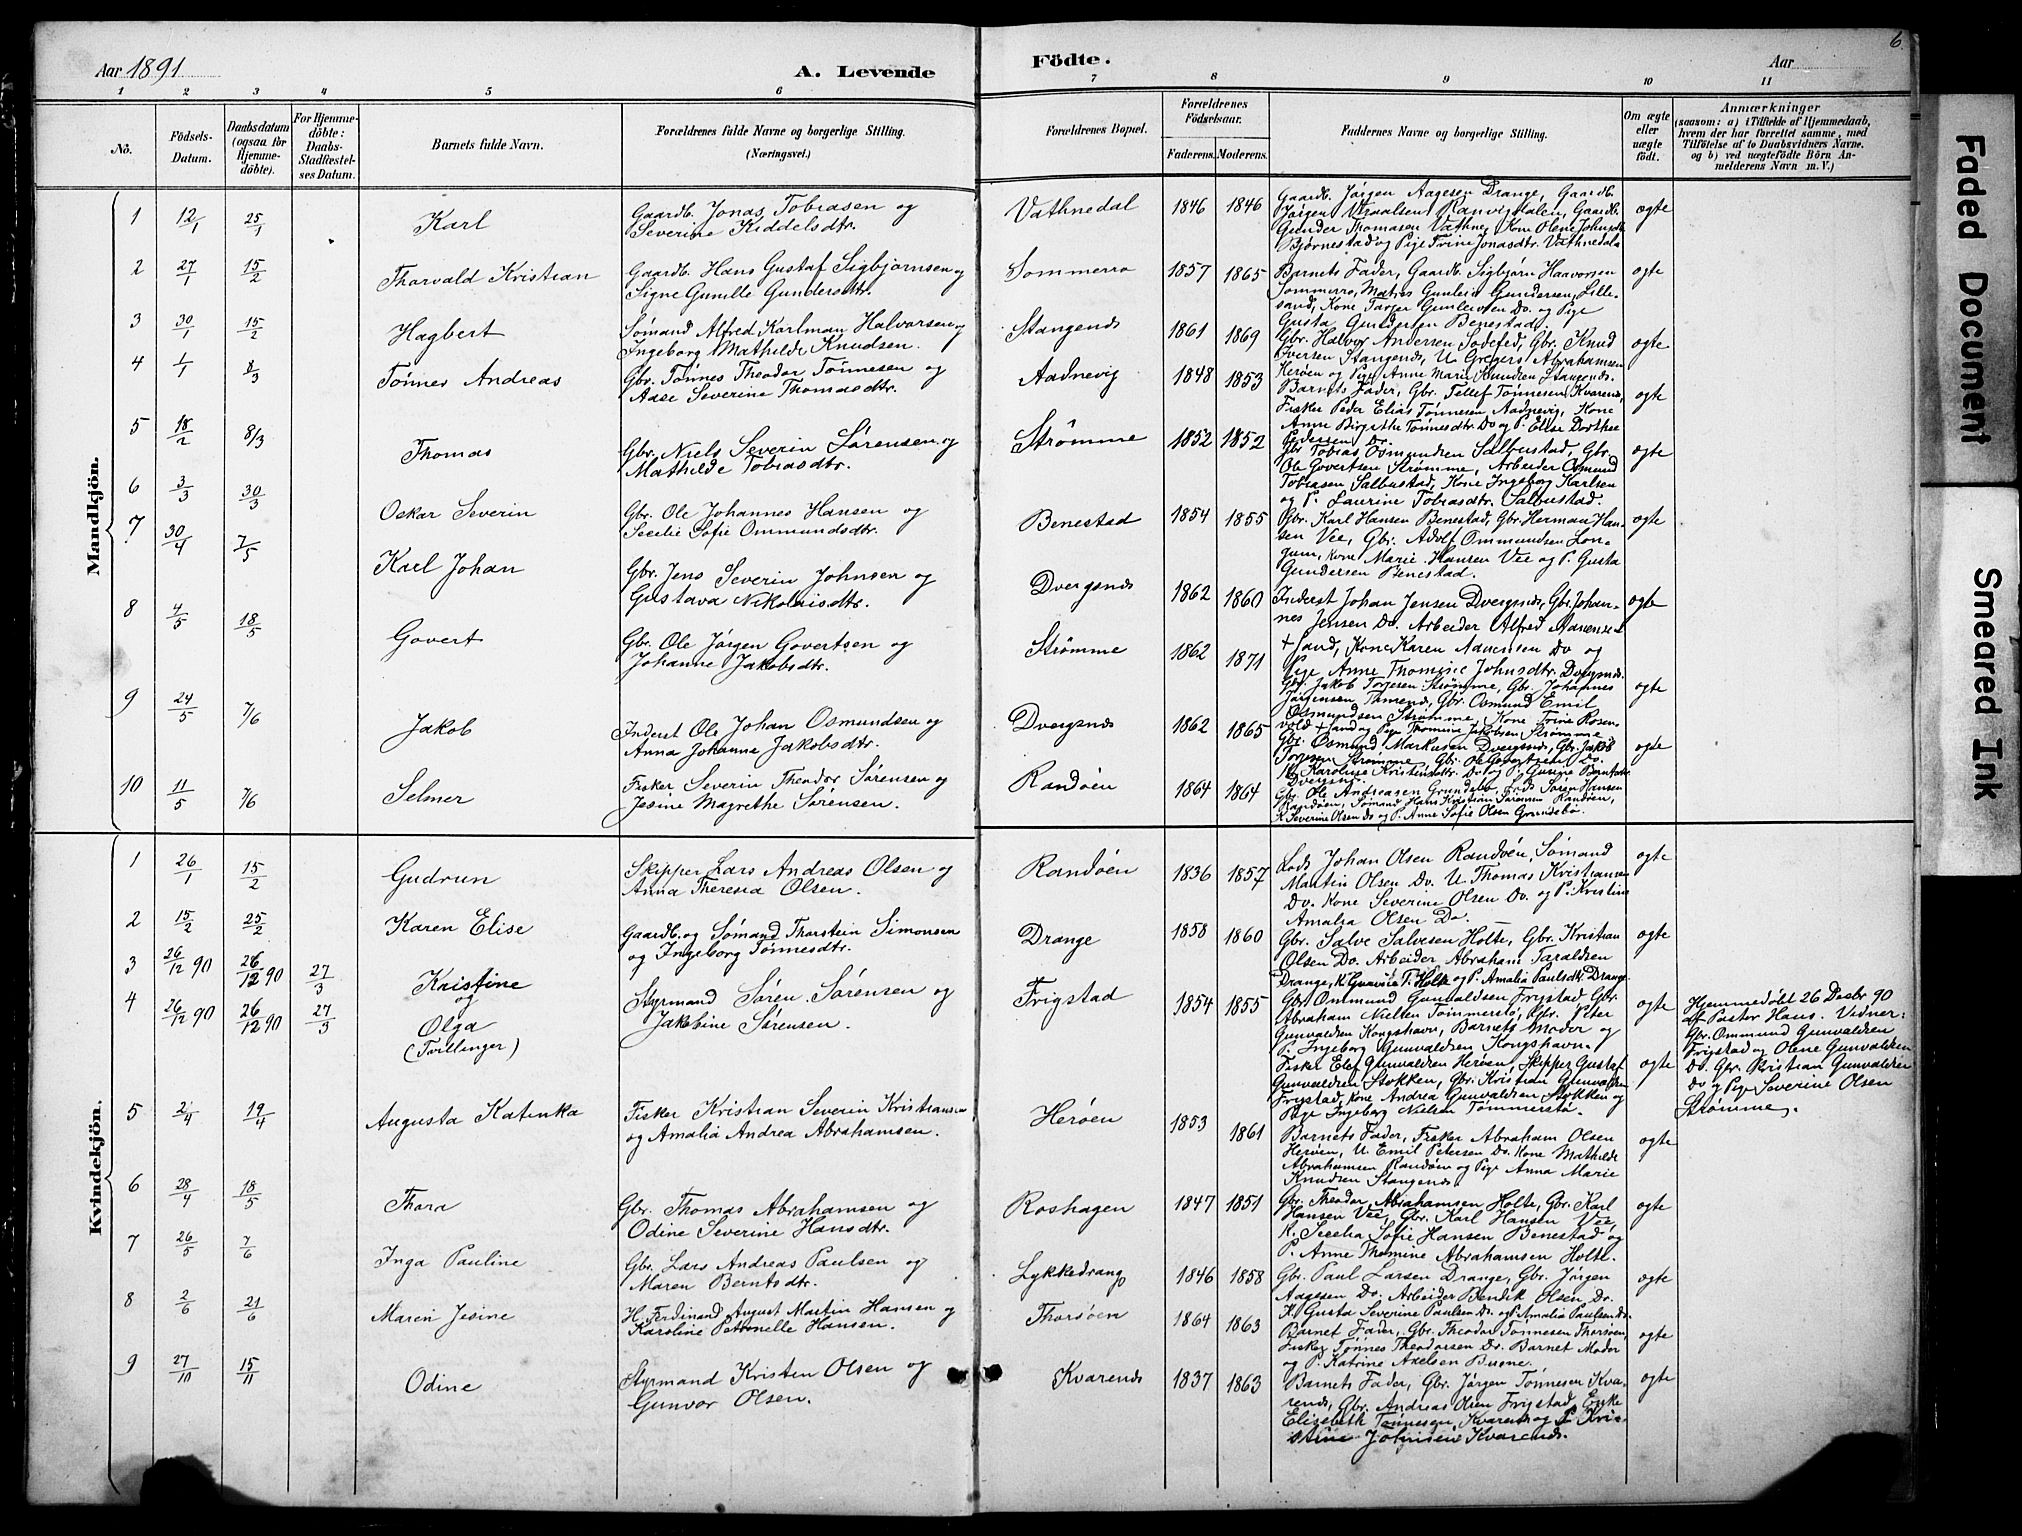 Aar 1891 A. Levende Födte. Aar 6
1 2 3 4 5 6 7 8 9 10 11
No. Födsels-Datum. Daabsdatum (ogsaa for Hjemmedöbte). For Hjemmedöbte: Daabs-Stadfæstelses Datum. Barnets fulde Navn. Forældrenes fulde Navne og borgerlige Stilling. (Næringsvei.) Forældrenes Bopæl. Forældrenes Födselsaar. Faderens. Moderens. Faddernes Navne og borgerlige Stilling. Om ægte eller uægte födt. Anmærkninger (saasom: a) i Tilfælde af Hjemmedaab, hvem der har forrettet samme, med Tilföielse af to Daabsvidners Navne, og b) ved uægtefödte Börn Anmelderens Navn m. V.)
Mandkjön.
1 12/1 25/1 Karl Gaardb. Jonas Tobiasen og Severine Kiddelsdtr. Vathnedal 1846 1846 Gaardb. Jørgen Aagesen Drange, Gaardb. Jørgen Ranvigdalen, Gaardb. Gunder Thomasen Vathne, Kone Olene Johnsdtr Bjørnestad og Pige Trine Jonasdtr. Vathnedal ægte
2 27/1 15/2 Thorvald Kristian Gaardb. Hans Gustaf Sigbjørnsen og Signe Gunille Gundersdtr. Sommerro 1857 1865 Barnets Fader, Gaardb. Sigbjørn Haavorsen Sommerro, Matros Gunleik Gundersen, Lillesand, Kone Do. og Pige Gusta Gundersen Benestad. ægte
3 30/1 15/2 Hagbert Sømand Alfred Karlman Halvorsen og Ingeborg Mathilde Knudsen. Stangenes 1861 1869 Gbr. Halvor Andersen, Gbr. Knud Iversen Stangenes, U. Gregers Abrahamsen Herøen og Pige Anne Marie Knudsen Stangenes. ægte
4 1/1 8/3 Tønnes Andreas Gbr. Tønnes Theodor Tønnesen og Aase Severine Thomasdtr. Aadnevig 1848 1853 Barnets Fader, Gbr. Tellef Tønnesen Kvarenes, Fisker Peder Elias Tønnesen Aadnevig, Kone Anne Birgithe Tønnesdtr. Do og P. Elise Dorthee Pedersen Do. ægte
5 18/2 8/3 Thomas Gbr. Niels Severin Sørensen og Mathilde Tobiasdtr. Strømme 1852 1852 Gbr. Tobias Osmundsen Salbustad, Gbr. Ole Govertsen Strømme, Arbeider Osmund Tobiasen Salbustad, Kone Ingeborg Karlsen og P. Laurine Tobiasdtr. Salbustad. ægte
6 3/3 30/3 Oskar Severin Gbr. Ole Johannes Hansen og Secilie Sofie Ommundsdtr. Benestad 1854 1855 Gbr. Karl Hansen Benestad, Gbr. Herman Hansen Vee, Gbr. Adolf Ommundsen Longum, Kone Marie Hansen Vee og P. Gusta Gundersen Benestad. ægte
7 30/4 7/5 Karl Johan Gbr. Jens Severin Johnsen og Gustava Nikolaisdtr. Dvergsnes 1862 1860 Inderst Johan Jensen Dvergsnes, Gbr. Johannes Jensen Do. Arbeider Alfred Aanensen +sand, Kone Karen Aanensen Do og Pige Anne Thomine Johnsdtr. Dvergsnes. ægte
8 4/5 18/5 Govert Gbr. Ole Jørgen Govertsen og Johanne Jakobsdtr. Strømme 1862 1871 Gbr. Jakob Torjesen Strømme, Gbr. Johannes Jørgensen, Gbr. Osmund Emil Osmundsen Strømme, Kone Trine Rosenvold +sand og Pige Thomine Jakobsen Strømme ægte
9 24/5 7/6 Jakob Inderst Ole Johan Osmundsen og Anna Johanna Jakobsdtr. Dvergsnes 1862 1865 Gbr. Osmund Markusen Dvergsnes, Gbr. Jakob Torjesen Strømme, Gbr. Ole Govertsen Do. K. Karoline Kristensdtr. Do og P. Dvergsnes. ægte
10 11/5 7/6 Selmer Fisker Severin Theodor Sørensen og Jesine Magrethe Sørensen. Randøen 1864 1864 Gbr. Ole Andreasen Grundebø, Lods Søren Hansen Randøen, Sømand Hans Kristian Sørensen Randøen, K. Severine Olsen Do og P. Anne Sofie Olsen Grundebø.
Kvindekjön.
1 26/1 15/2 Gudrun Skipper Lars Andreas Olsen og Anna Theresia Olsen. Randøen 1836 1857 Lods Johan Olsen Randøen, Sømand Martin Olsen Do. U. Thomas Kristiansen Do. Kone Severine Olsen Do. og P. Kristine Amalia Olsen Do. ægte
2 15/2 25/2 Karen Elise Gaardb. og Sømand Thorstein Simonsen og Ingeborg Tønnesdtr. Drange 1858 1860 Gbr. Salve Salvesen Holte, Gbr. Kristian Olsen Do. Arbeider Abraham Taraldsen Drange, K. Holte og P. Amalia Paulsdtr. Drange ægte
3 26/12 90 26/12 90 27/3 Kristine
og
4 26/12 90 26/12 90 27/3 Olga (Tvillinger) Styrmand Søren Sørensen og Jakobine Sørensen. Frigstad 1854 1855 Gbr. Ommund Gunvaldsen Frigstad, Gbr. Abraham Nielsen Tømmerstø, Gbr. Peter Gunvaldsen Kongshavn, Barnets Moder og P. Ingeborg Gunvaldsen Kongshavn. ægte
Fisker Elef Gunvaldsen Herøen, Skipper Gustaf Gunvaldsen Stokken, Gbr. Kristian Gunvaldsen Frigstad, Kone Andrea Gunvaldsen Stokken og Pige Ingeborg Nielsen Tømmerstø. ægte
Hjemmedøbt 26 Decbr. 90
af Pastor Hans. Vidner:
Gbr. Ommund Gunvaldsen
Frigstad og Olene Gunvaldsen
Do. Gbr. Kristian Gunvaldsen
Do og Pige Severine Olsen
Strømme.
5 2/4 19/4 Augusta Katinka Fisker Kristian Severin Kristiansen og Amalia Andrea Abrahamsen. Herøen 1853 1861 Barnets Fader, Fisker Abraham Olsen Herøen, U. Emil Petersen Do. Kone Mathilde Abrahamsen Randøen og Pige Anna Marie Knudsen Stangenes ægte
6 28/4 18/5 Thora Gbr. Thomas Abrahamsen og Odine Severine Hansdtr. Roshagen 1847 1851 Gbr. Theodor Abrahamsen Holte, Gbr. Karl Hansen Vee, Gbr. Karl Hansen Vee, K. Secelia Sofie Hansen Benestad og P. Anne Thomine Abrahamsen Holte. ægte
7 26/5 7/6 Inga Pauline Gbr. Lars Andreas Paulsen og Maren Berntsdtr. Lykkedrang 1846 1858 Gbr. Paul Larsen Drange, Gbr. Jørgen Aagesen Do. Arbeider Bendik Olsen Do. K. Gusta Severine Paulsen Do. og P. Amalia Paulsen Do. ægte
8 2/6 21/6 Maren Jesine H. Ferdinand August Martin Hansen og Karoline Petronelle Hansen. Thorsøen 1864 1863 Barnet Fader, Gbr. Theodor Tønnesen Thorsøen, Fisker Tønnes Theodorsen Do. Barnet Moder og P. Katrine Axelsen Buene. ægte
9 27/10 15/11 Odine Styrmand Kristen Olsen og Gunvor Olsen. Kvarenes 1837 1863 Barnets Fader, Gbr. Jørgen Tønnesen Kvarenes, Gbr. Andreas Olsen Frigstad, Enke Elizabeth Tønnesen, Kvarenes og P. Kristine Johnsen Kvarenes. ægte
Faded Document
Smeared Ink